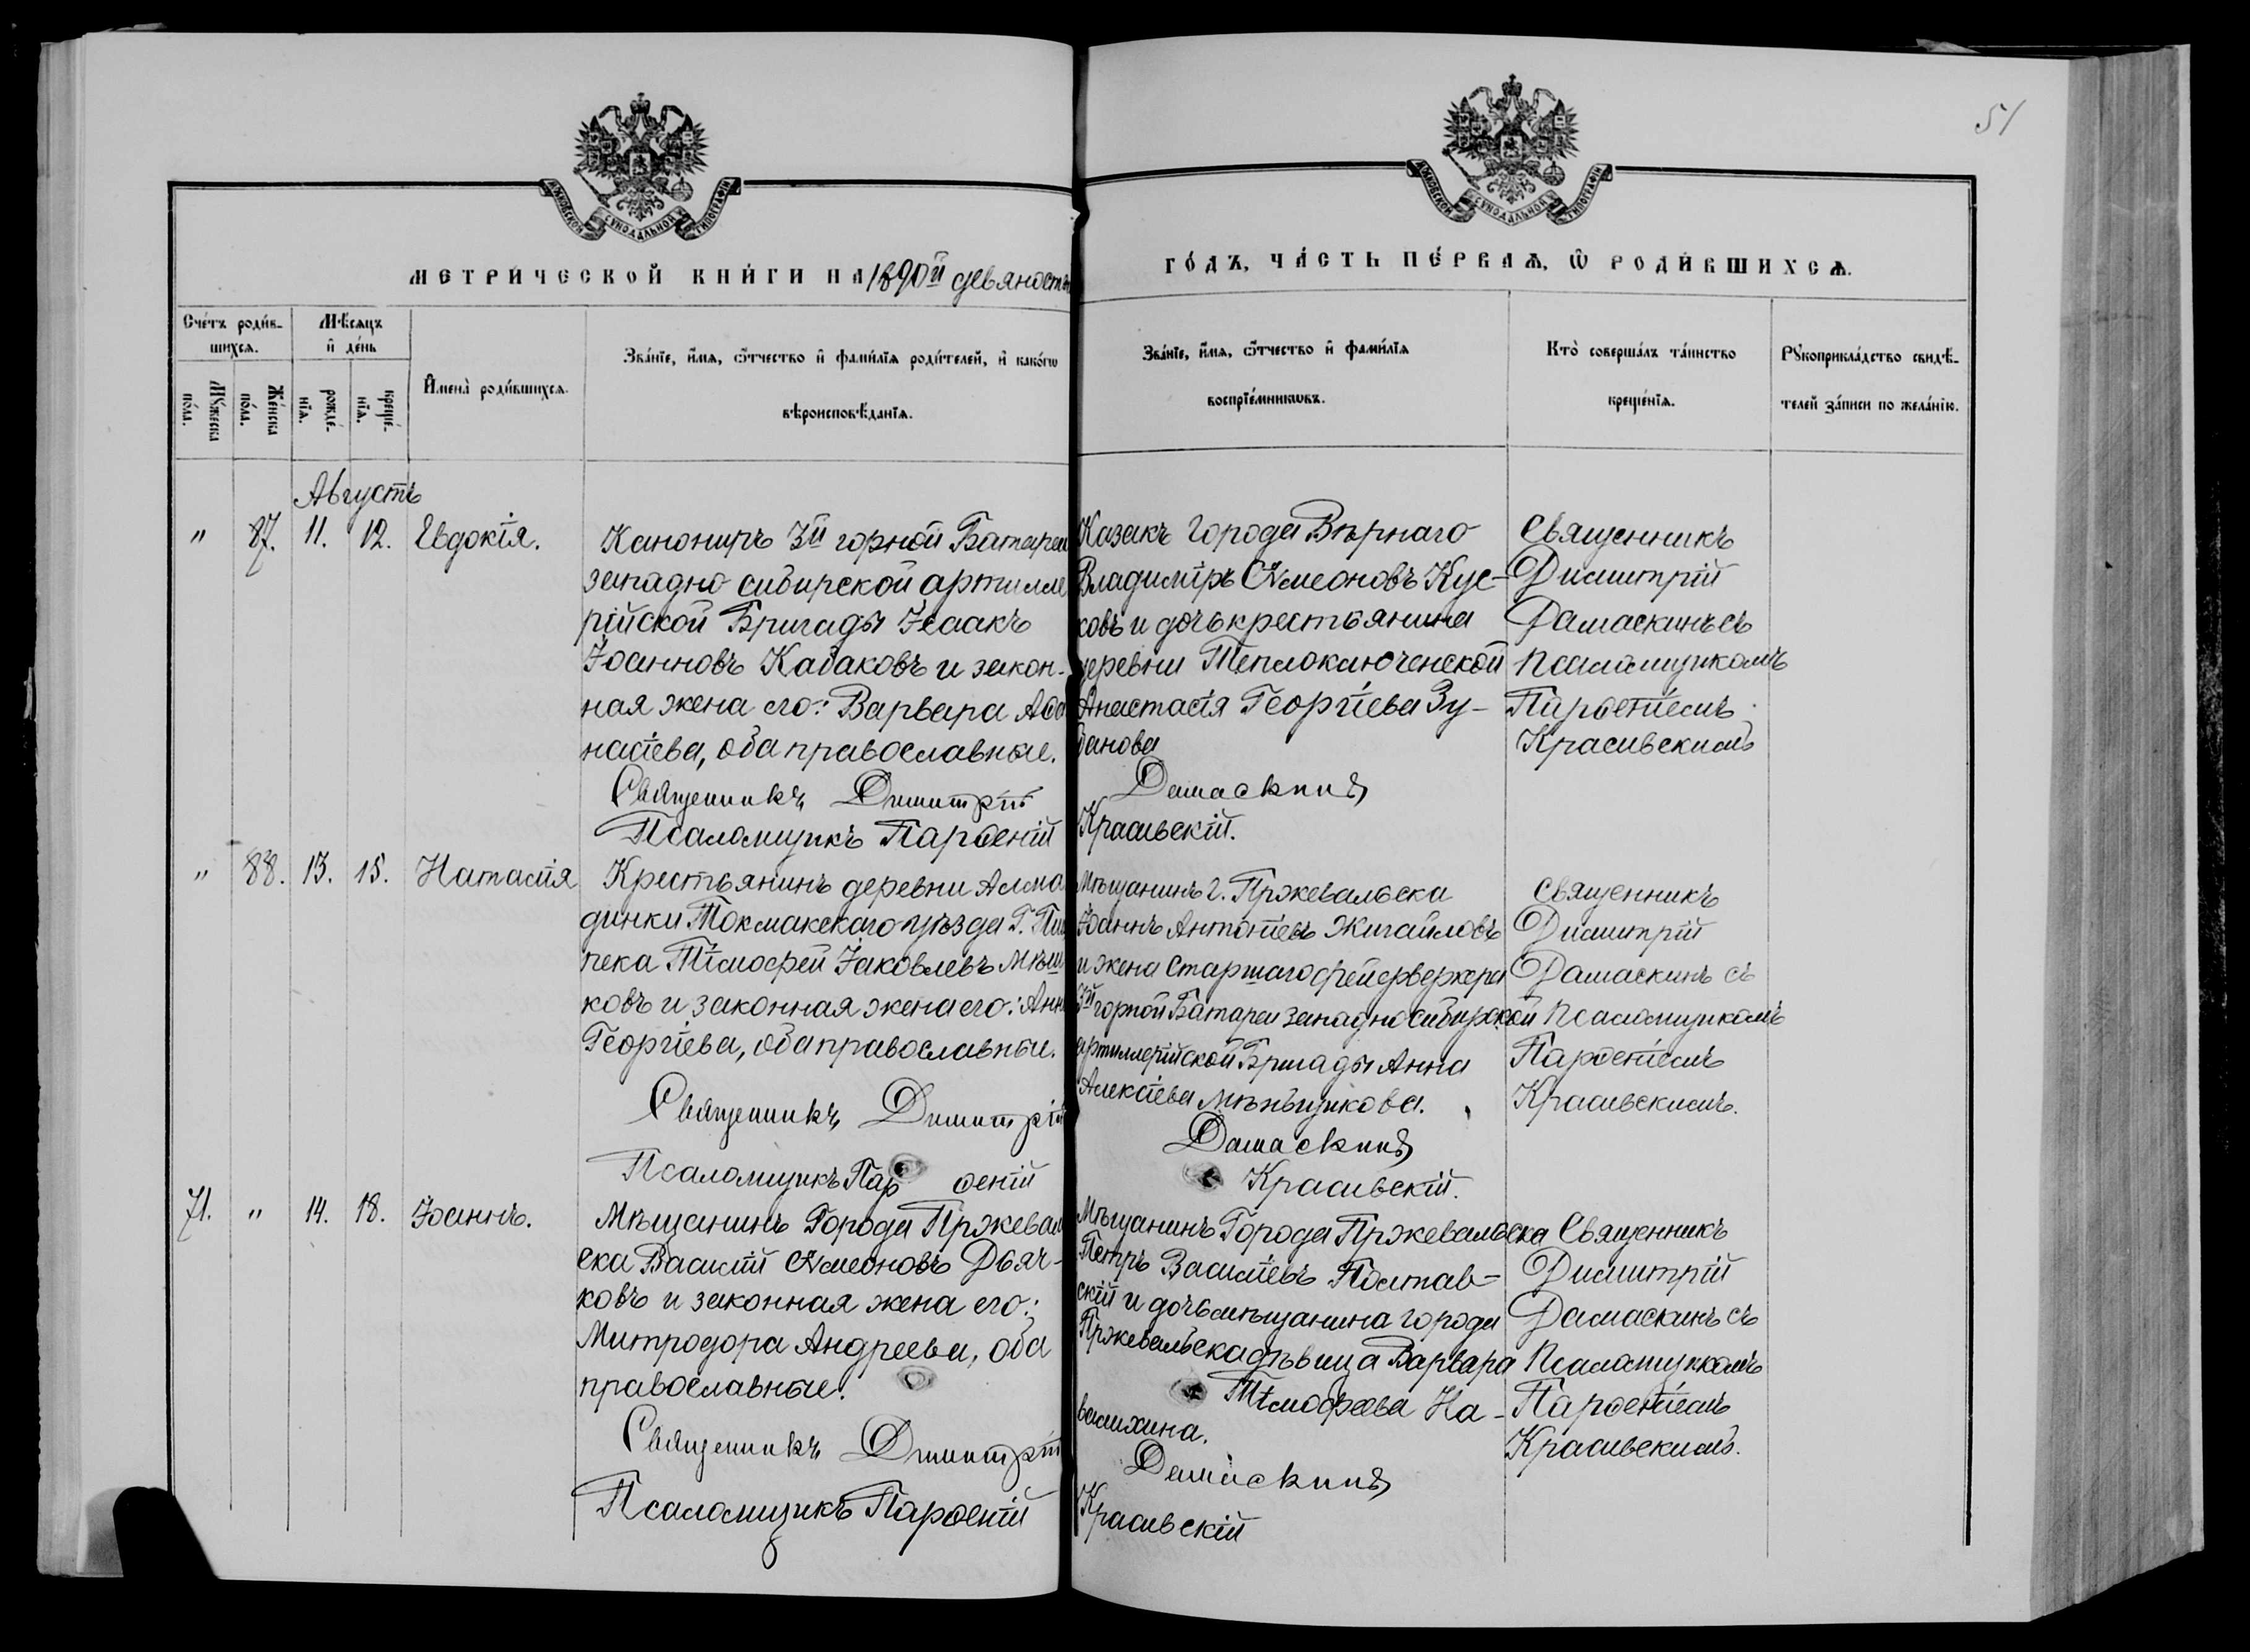 51
МОСКОВСКОЙ СѴНОДАЛЬНОЙ ТИПОГРАФІИ
МОСКОВСКОЙ СѴНОДАЛЬНОЙ ТИПОГРАФІИ
МЕТРИ́ЧЕСКОЙ КНИ́ГИ НА 1890й девяносты
ГО́ДЪ, ЧА́СТЬ ПЕ́РВАѦ, Ѡ РОДИ́ВШИХСѦ.
Сче́тъ роди́в-
шихсѧ.
Мꙋ́жеска
по́ла.
Же́нска
по́ла.
Мѣ́сѧцъ
и҆ де́нь
рожде́-
нїѧ.
креще́-
нїѧ.
И҆мена̀ роди́вшихсѧ.
Зва́нїе, и҆́мѧ, ѻ҆́тчество и҆ фами́лїѧ роди́телей, и҆ како́гѡ
вѣроисповѣ́данїѧ.
Зва́нїе, и҆́мѧ, ѻ҆́тчество и҆ фами́лїѧ
воспрїе́мникѡвъ.
Кто̀ соверша́лъ та́инство
креще́нїѧ.
Рꙋкоприкла́дство свидѣ́-
телей за́писи по жела́нїю.
Августъ
" 87. 11. 12. Евдокія.
Канониръ 3й горной Батареи
западно сибирской артилле
рійской Бригады Исаакъ
Іоанновъ Кабаковъ и закон-
ная жена его: Варвара Аѳа
насіева, оба православные.
Священникъ Димитрій
Псаломщикъ Парѳеній
Казакъ города Вѣрнаго
Владиміръ Сѵмеоновъ Кус-
ковъ и дочь крестьянина
деревни Теплоключенской
Анастасія Георгіева Зу-
банова
Дамаскинъ
Красивскій.
Священникъ
Димитрій
Дамаскинъ съ
Псаломщикомъ
Парѳеніемъ
Красивскимъ
" 88. 13. 15. Наталія
Крестьянинъ деревни Алма
динки Токмакскаго уѣзда Г. Пиш
пека Тимофей Іаковлевъ Мѣш
ковъ и законная жена его: Анна
Георгіева, оба православные.
Священникъ Димитрій
Псаломщикъ Пар ѳеній
Мѣщанинъ г. Пржевальска
Іоаннъ Антоніевъ Жигайловъ
и жена старшаго фейерверкера
3й горной Батареи западносибирской
артиллерійской Бригады Анна
Алексіева Мѣньщикова.
Дамаскинъ
Красивскій.
Священникъ
Димитрій
Дамаскинъ съ
Псаломщикомъ
Парѳеніемъ
Красивскимъ.
71. " 14. 18. Іоаннъ.
Мѣщанинъ Города Пржеваль
ска Василій Сѵмеоновъ Дьяч-
ковъ и законная жена его:
Митродора Андреева, оба
православные.
Священникъ Димитрій
Псаломщикъ Парѳеній
Мѣщанинъ Города Пржевальска
Петръ Василіевъ Полтав-
скій и дочь мѣщанина города
Пржевальска дѣвица Варвара
Тимофеева На-
валихина.
Дамаскинъ
Красивскій
Священникъ
Димитрій
Дамаскинъ съ
Псаломщикомъ
Парѳеніемъ
Красивскимъ.